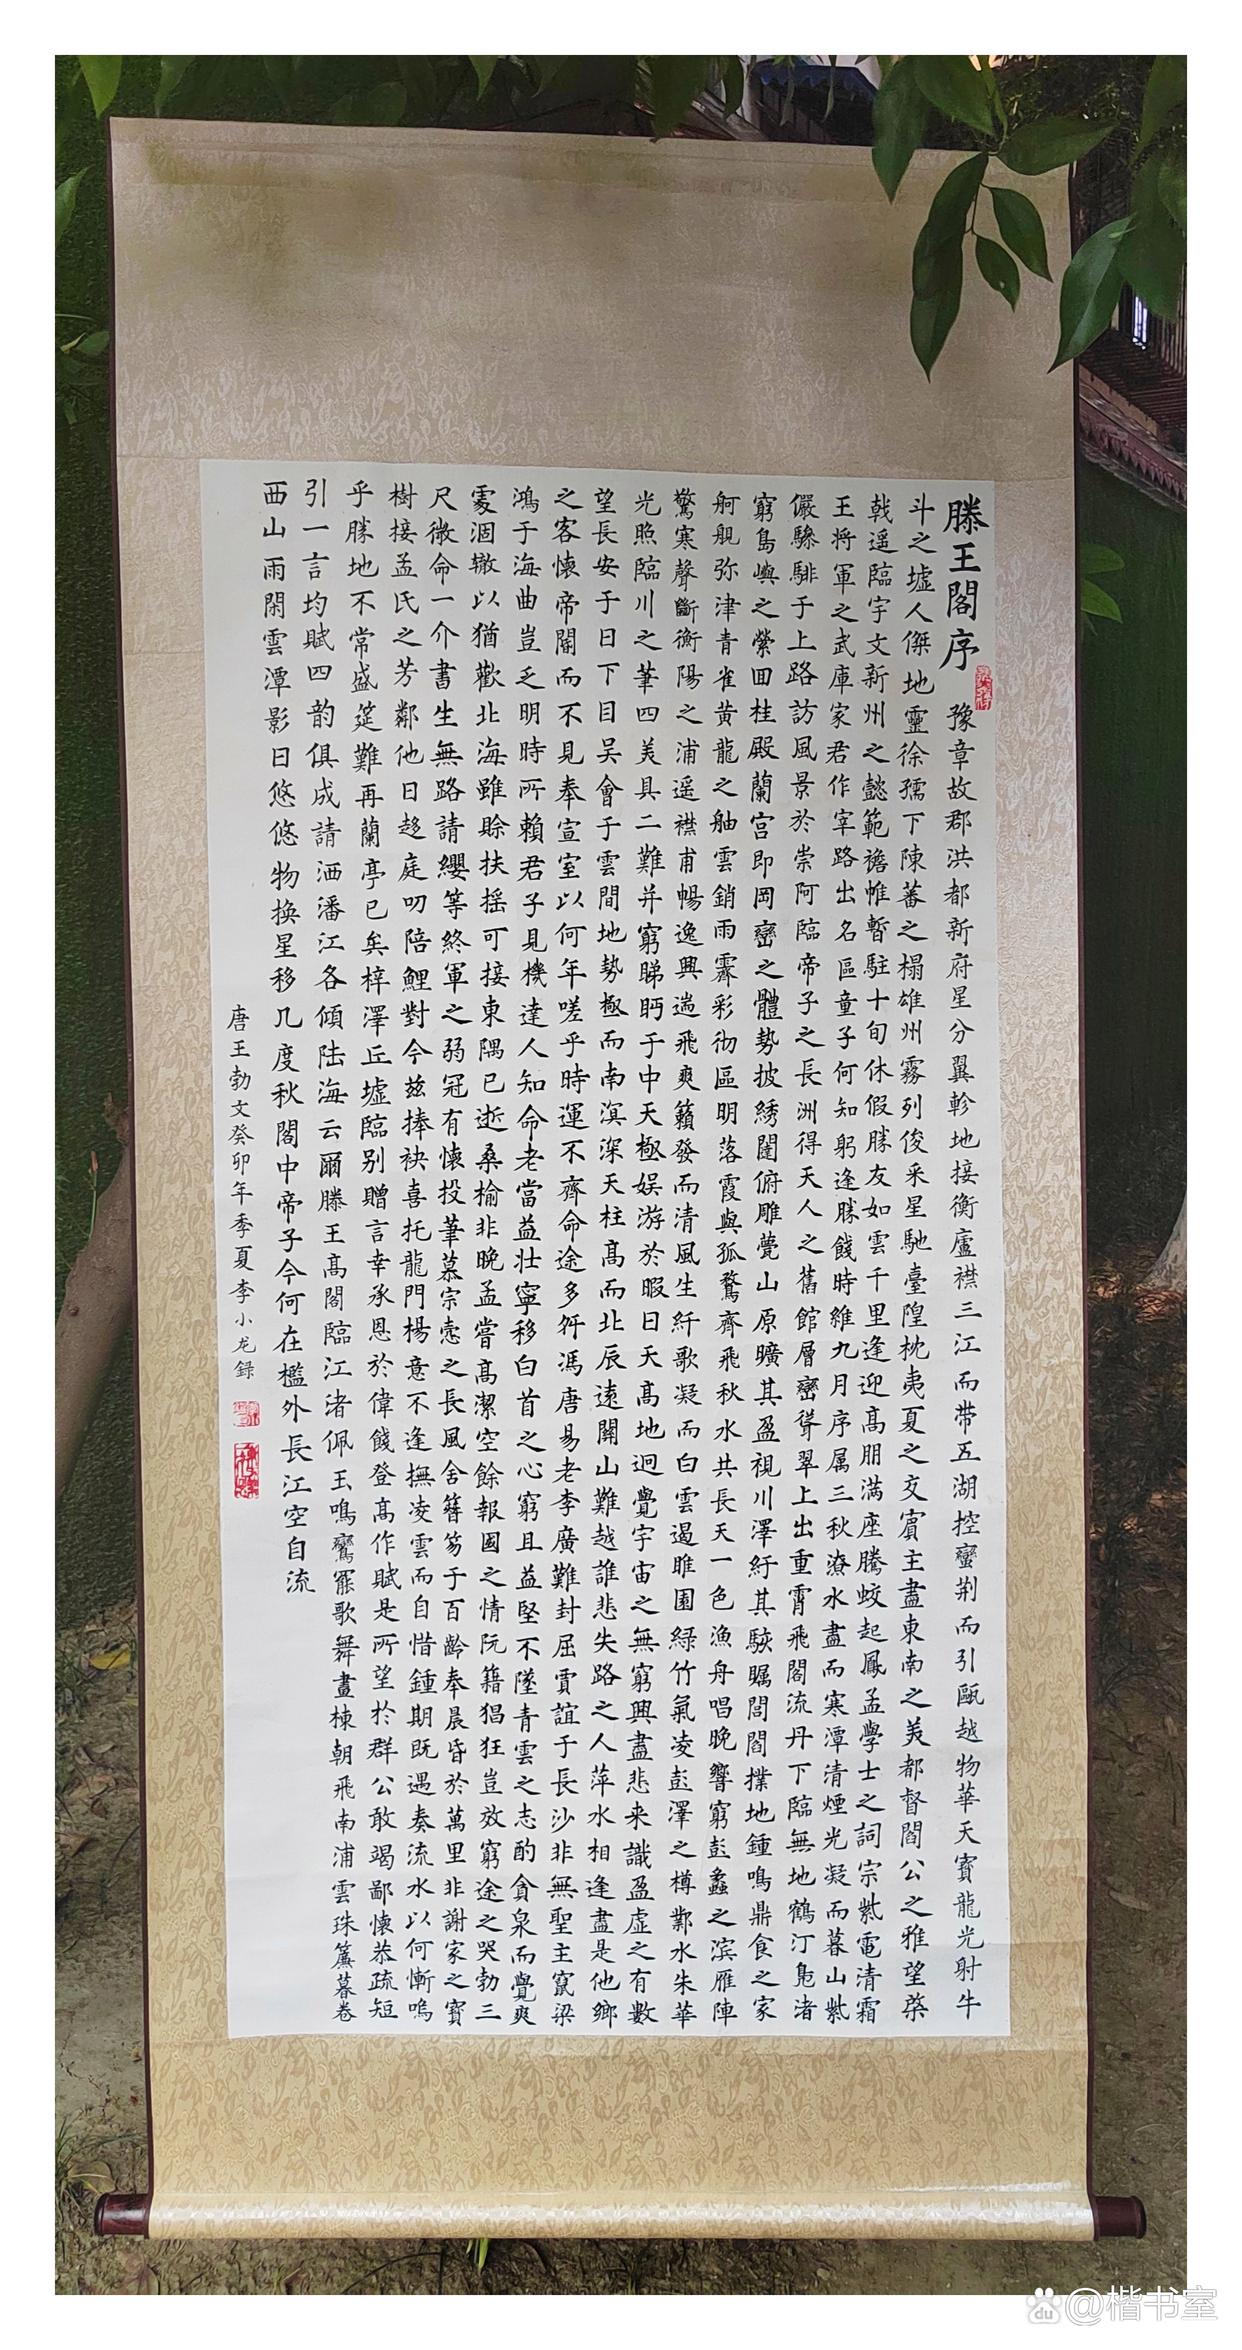 滕王閣序
豫章故郡洪都新府星分翼軫地接衡廬襟三江而带五湖控蠻荆而引甌越物華天寳龍光射牛
斗之墟人傑地靈徐孺下陳蕃之榻雄州霧列俊采星馳臺隍枕夷夏之交賓主盡東南之美都督閻公之雅望棨
戟遥臨宇文新州之懿範襜帷暫駐十旬休假勝友如雲千里逢迎高朋满座騰蛟起鳳孟學士之詞宗紫電清霜
王將軍之武庫家君作宰路出名區童子何知躬逢勝餞時維九月序属三秋潦水盡而寒潭清煙光凝而暮山紫
儼驂騑于上路訪風景於崇阿臨帝子之長洲得天人之舊館層巒聳翠上出重霄飛閣流丹下臨無地鶴汀鳬渚
窮島嶼之縈囬桂殿蘭宫即岡巒之體勢披綉闥俯雕甍山原曠其盈視川澤紆其駭矚閭閻撲地鍾鳴鼎食之家
舸舰弥津青雀黄龍之舳雲銷雨霽彩彻區明落霞與孤鶩齊飛秋水共長天一色漁舟唱晚響窮彭蠡之滨雁陣
驚寒聲斷衡陽之浦遥襟甫暢逸興遄飛爽籟發而清風生纤歌凝而白雲遏睢園緑竹氣凌彭澤之樽鄴水朱華
光照臨川之筆四美具二難并窮睇眄于中天極娱游於暇日天高地迥覺宇宙之無窮興盡悲来識盈虚之有數
望長安于日下目吴會于雲間地勢極而南溟深天柱高而北辰遠關山難越誰悲失路之人萍水相逢盡是他鄉
之客懷帝閽而不見奉宣室以何年嗟乎時運不齊命途多舛馮唐易老李廣難封屈賈誼于長沙非無聖主竄梁
鴻于海曲豈乏明時所賴君子見機達人知命老當益壯寧移白首之心窮且益堅不墜青雲之志酌貪泉而覺爽
處涸辙以猶歡北海雖賒扶摇可接東隅已逝桑榆非晚孟嘗高潔空餘報國之情阮籍猖狂豈效窮途之哭勃三
尺微命一介書生無路請纓等終軍之弱冠有懷投筆慕宗悫之長風舍簪笏于百齡奉晨昏於萬里非謝家之寳
樹接孟氏之芳鄰他日趍庭叨陪鯉對今兹捧袂喜托龍門楊意不逢撫凌雲而自惜鍾期既遇奏流水以何慚嗚
乎勝地不常盛筵難再蘭亭已矣梓澤丘墟臨别贈言幸承恩於偉餞登高作賦是所望於群公敢竭鄙懷恭疏短
引一言均賦四韵俱成請洒潘江各傾陆海云爾滕王高閣臨江渚佩玉鳴鸞罷歌舞畫棟朝飛南浦雲珠簾暮卷
西山雨閑雲潭影日悠悠物换星移几度秋閣中帝子今何在檻外長江空自流
唐王勃文癸卯年季夏李小龙録
@楷书室